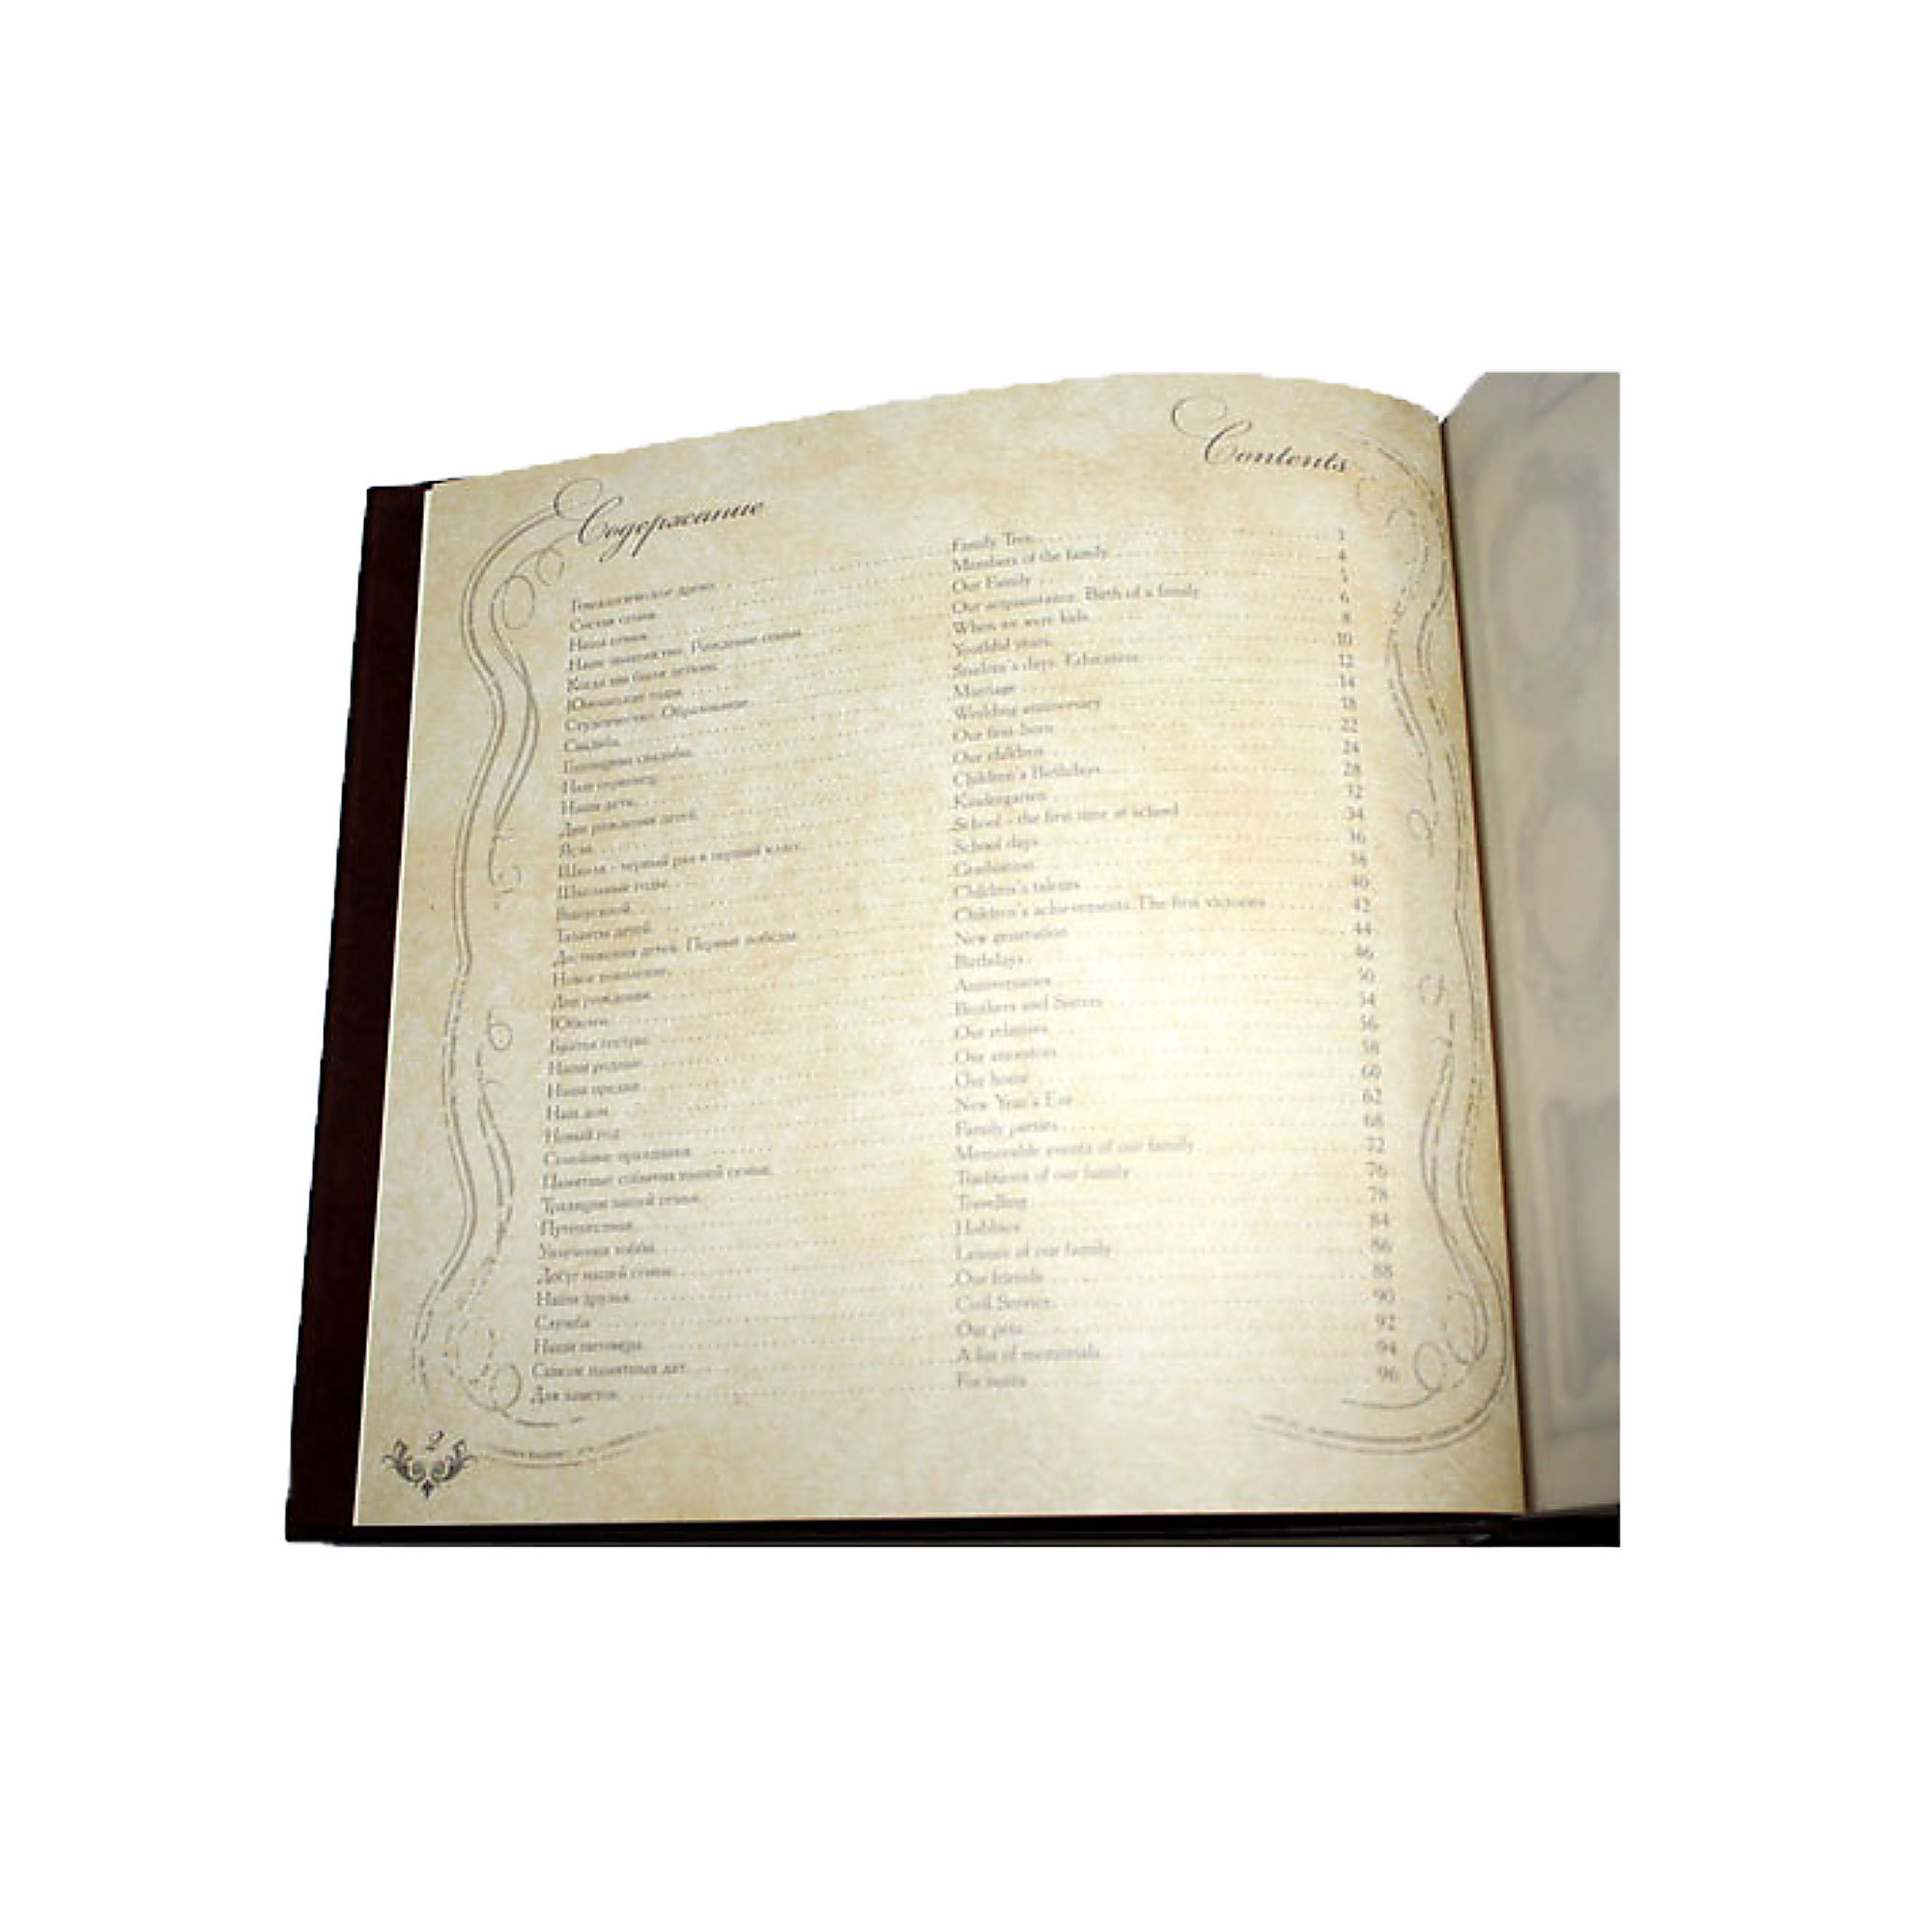 Содержание
Contents
Генеалогическое древо Family Tree 3
Состав семьи Members of the family 4
Наша семья Our Family 5
Наше знакомство. Рождение семьи Our acquaintance. Birth of a family 6
Когда мы были детьми When we were kids 8
Юношеские годы Youthful years 10
Студенчество. Образование Student's days. Education 12
Свадьба Marriage 14
Годовщины свадьбы Wedding anniversary 18
Наш первенец Our first-born 22
Наши дети Our children 24
Дни рождения детей Children's Birthdays 28
Ясли Kindergarten 32
Школа - первый раз в первый класс School - the first time at school 34
Школьные годы School days 36
Выпускной Graduation 38
Таланты детей Children's talents 40
Достижения детей. Первые победы Children's achievements. The first victories 42
Новое поколение New generation 44
Дни рождения Birthdays 46
Юбилеи Anniversaries 50
Братья сестры Brothers and Sisters 54
Наши родные Our relatives 56
Наши предки Our ancestors 58
Наш дом Our home 60
Новый год New Year's Eve 62
Семейные праздники Family parties 68
Памятные события нашей семьи Memorable events of our family 72
Традиции нашей семьи Traditions of our family 76
Путешествия Travelling 78
Увлечения хобби Hobbies 84
Досуг нашей семьи Leisure of our family 86
Наши друзья Our friends 88
Служба Civil Service 90
Наши питомцы Our pets 92
Список памятных дат A list of memorials 94
Для заметок For notes 96
2